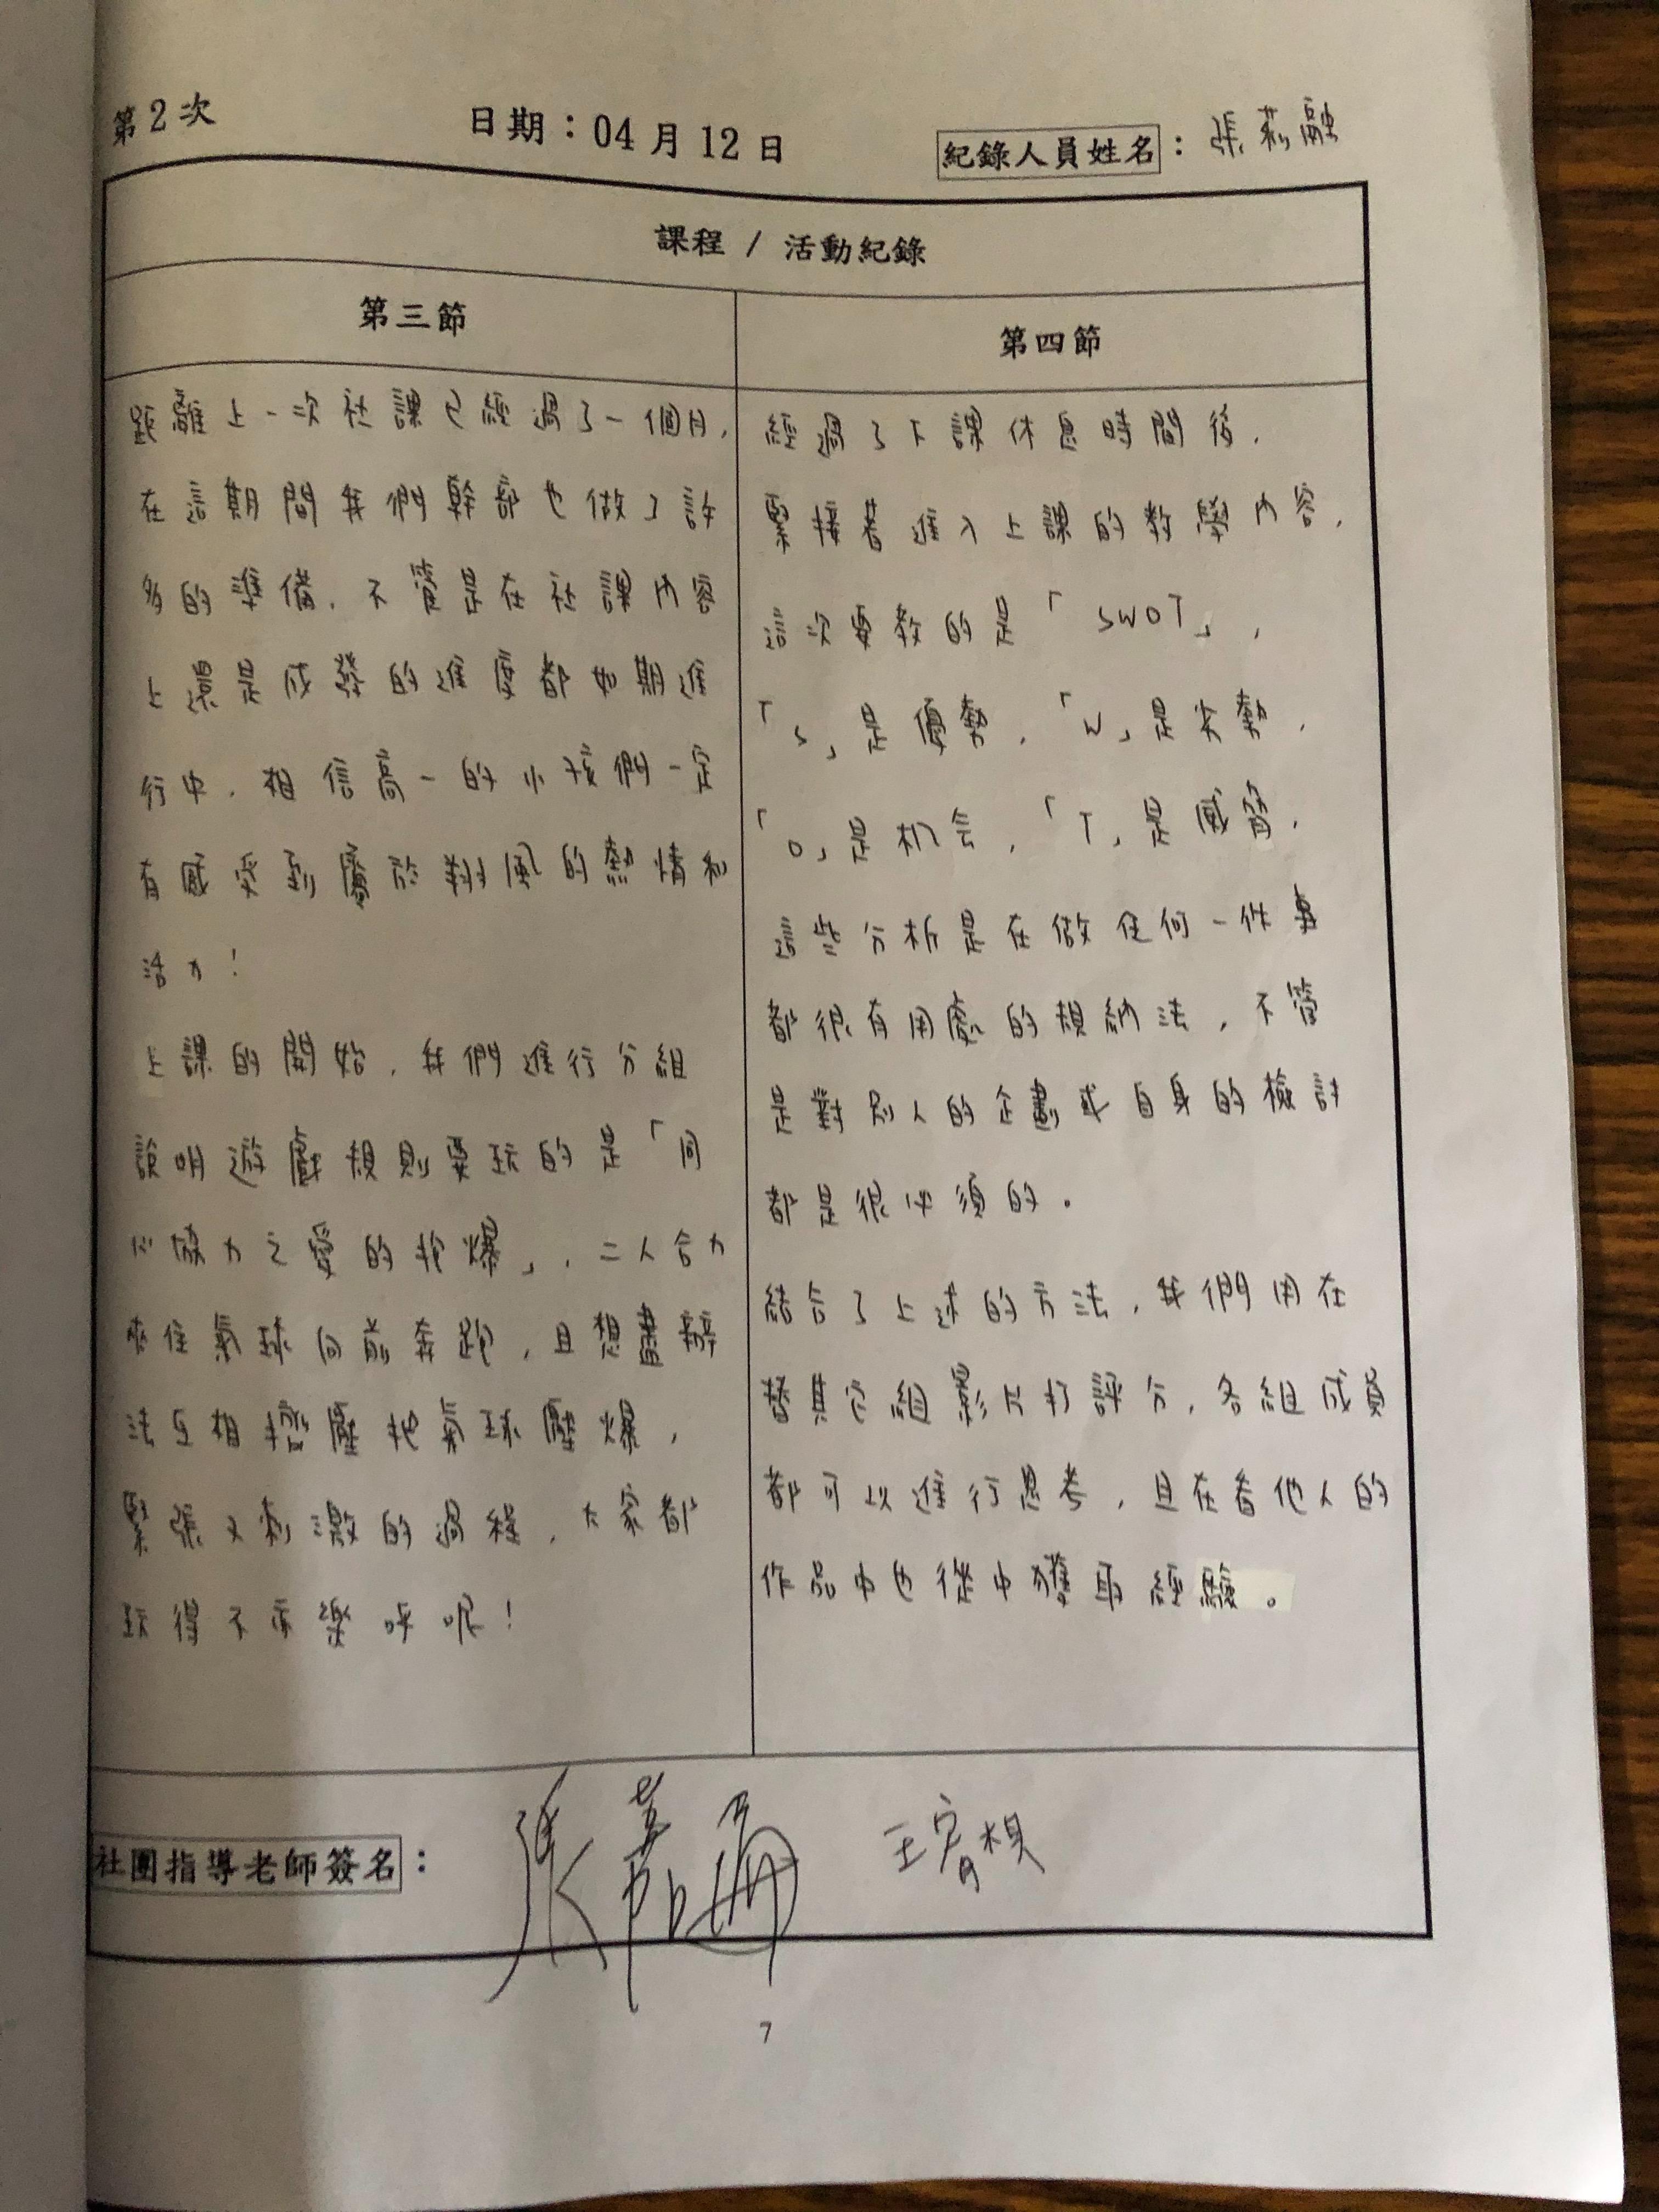 第2次
日期：04月12日
紀錄人員姓名：張莉融
課程 / 活動紀錄
第三節
距離上一次社課已經過了一個月,
在這期間我們幹部也做了許
多的準備,不管是在社課內容
上還是成發的進度都如期進
行中,相信高一的小孩們一定
有感受到屬於翔風的熱情和
活力!
上課的開始,我們進行分組
說明遊戲規則要玩的是「同
心協力之愛的抱爆」,二人合力
夾住氣球向前奔跑,且想盡辦
法互相擠壓把氣球壓爆,
緊張又刺激的過程,大家都
玩得不亦樂呼呢!
第四節
經過了下課休息時間後,
緊接著進入上課的教學內容,
這次要教的是「SWOT」,
「S」是優勢,「W」是劣勢,
「O」是机会,「T」是威脅,
這些分析是在做任何一件事
都很有用處的規納法,不管
是對別人的企劃或自身的檢討
都是很必須的。
結合了上述的方法,我們用在
替其它組影片打評分,各組成員
都可以進行思考,且在看他人的
作品中也從中獲取經驗。
社團指導老師簽名：
7